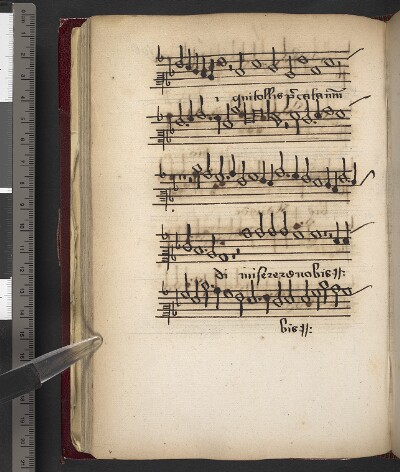 qui tollis p̄cata mūdi
di miserere nobis ij:
bis ij: